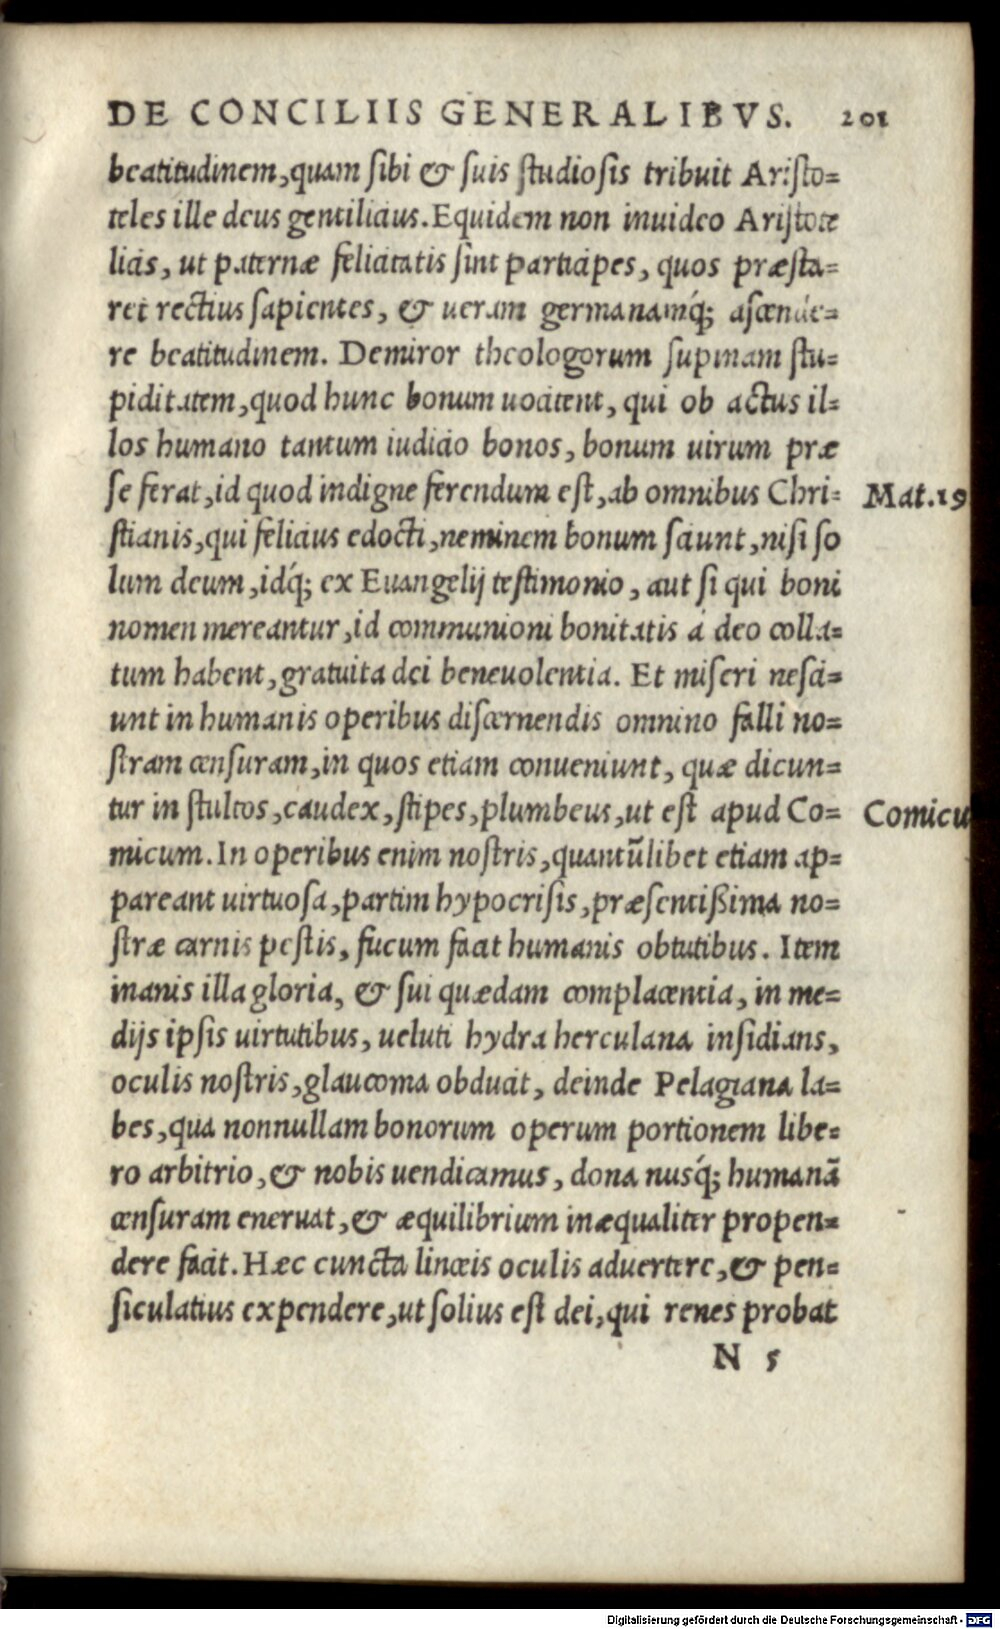 DE CONCILIIS GENERALIBVS. 201
beatitudinem, quam sibi & suis studiosis tribuit Aristo=
teles ille deus gentilicius. Equidem non inuideo Aristote
licis, ut paternæ felicitatis sint participes, quos præsta=
ret rectius sapientes, & ueram germanamq́; ascende=
re beatitudinem. Demiror theologorum supinam stu=
piditatem, quod hunc bonum uocitent, qui ob actus il=
los humano tantum iudicio bonos, bonum uirum præ
se ferat, id quod indigne ferendum est, ab omnibus Chri= Mat.19
stianis, qui felicius edocti, neminem bonum sciunt, nisi so
lum deum, idq́; ex Euangelij testimonio, aut si qui boni
nomen mereantur, id communioni bonitatis á deo colla=
tum habent, gratuita dei beneuolentia. Et miseri nesci=
unt in humanis operibus discernendis omnino falli no=
stram censuram, in quos etiam conueniunt, quæ dicun=
tur in stultos, caudex, stipes, plumbeus, ut est apud Co= Comicu
micum. In operibus enim nostris, quantũlibet etiam ap=
pareant uirtuosa, partim hypocrisis, præsentißima no=
stræ carnis pestis, fucum facit humanis obtutibus. Item
inanis illa gloria, & sui quædam complacentia, in me=
dijs ipsis uirtutibus, ueluti hydra herculana insidians,
oculis nostris, glaucoma obducit, deinde Pelagiana la=
bes, qua nonnullam bonorum operum portionem libe=
ro arbitrio, & nobis uendicamus, dona nusq́; humanã
censuram eneruat, & æquilibrium inæqualiter propen=
dere facit. Hæc cuncta linceis oculis aduertere, & pen=
siculatius expendere, ut solius est dei, qui renes probat
N 5
Digitalisierung gefördert durch die Deutsche Forschungsgemeinschaft - DFG